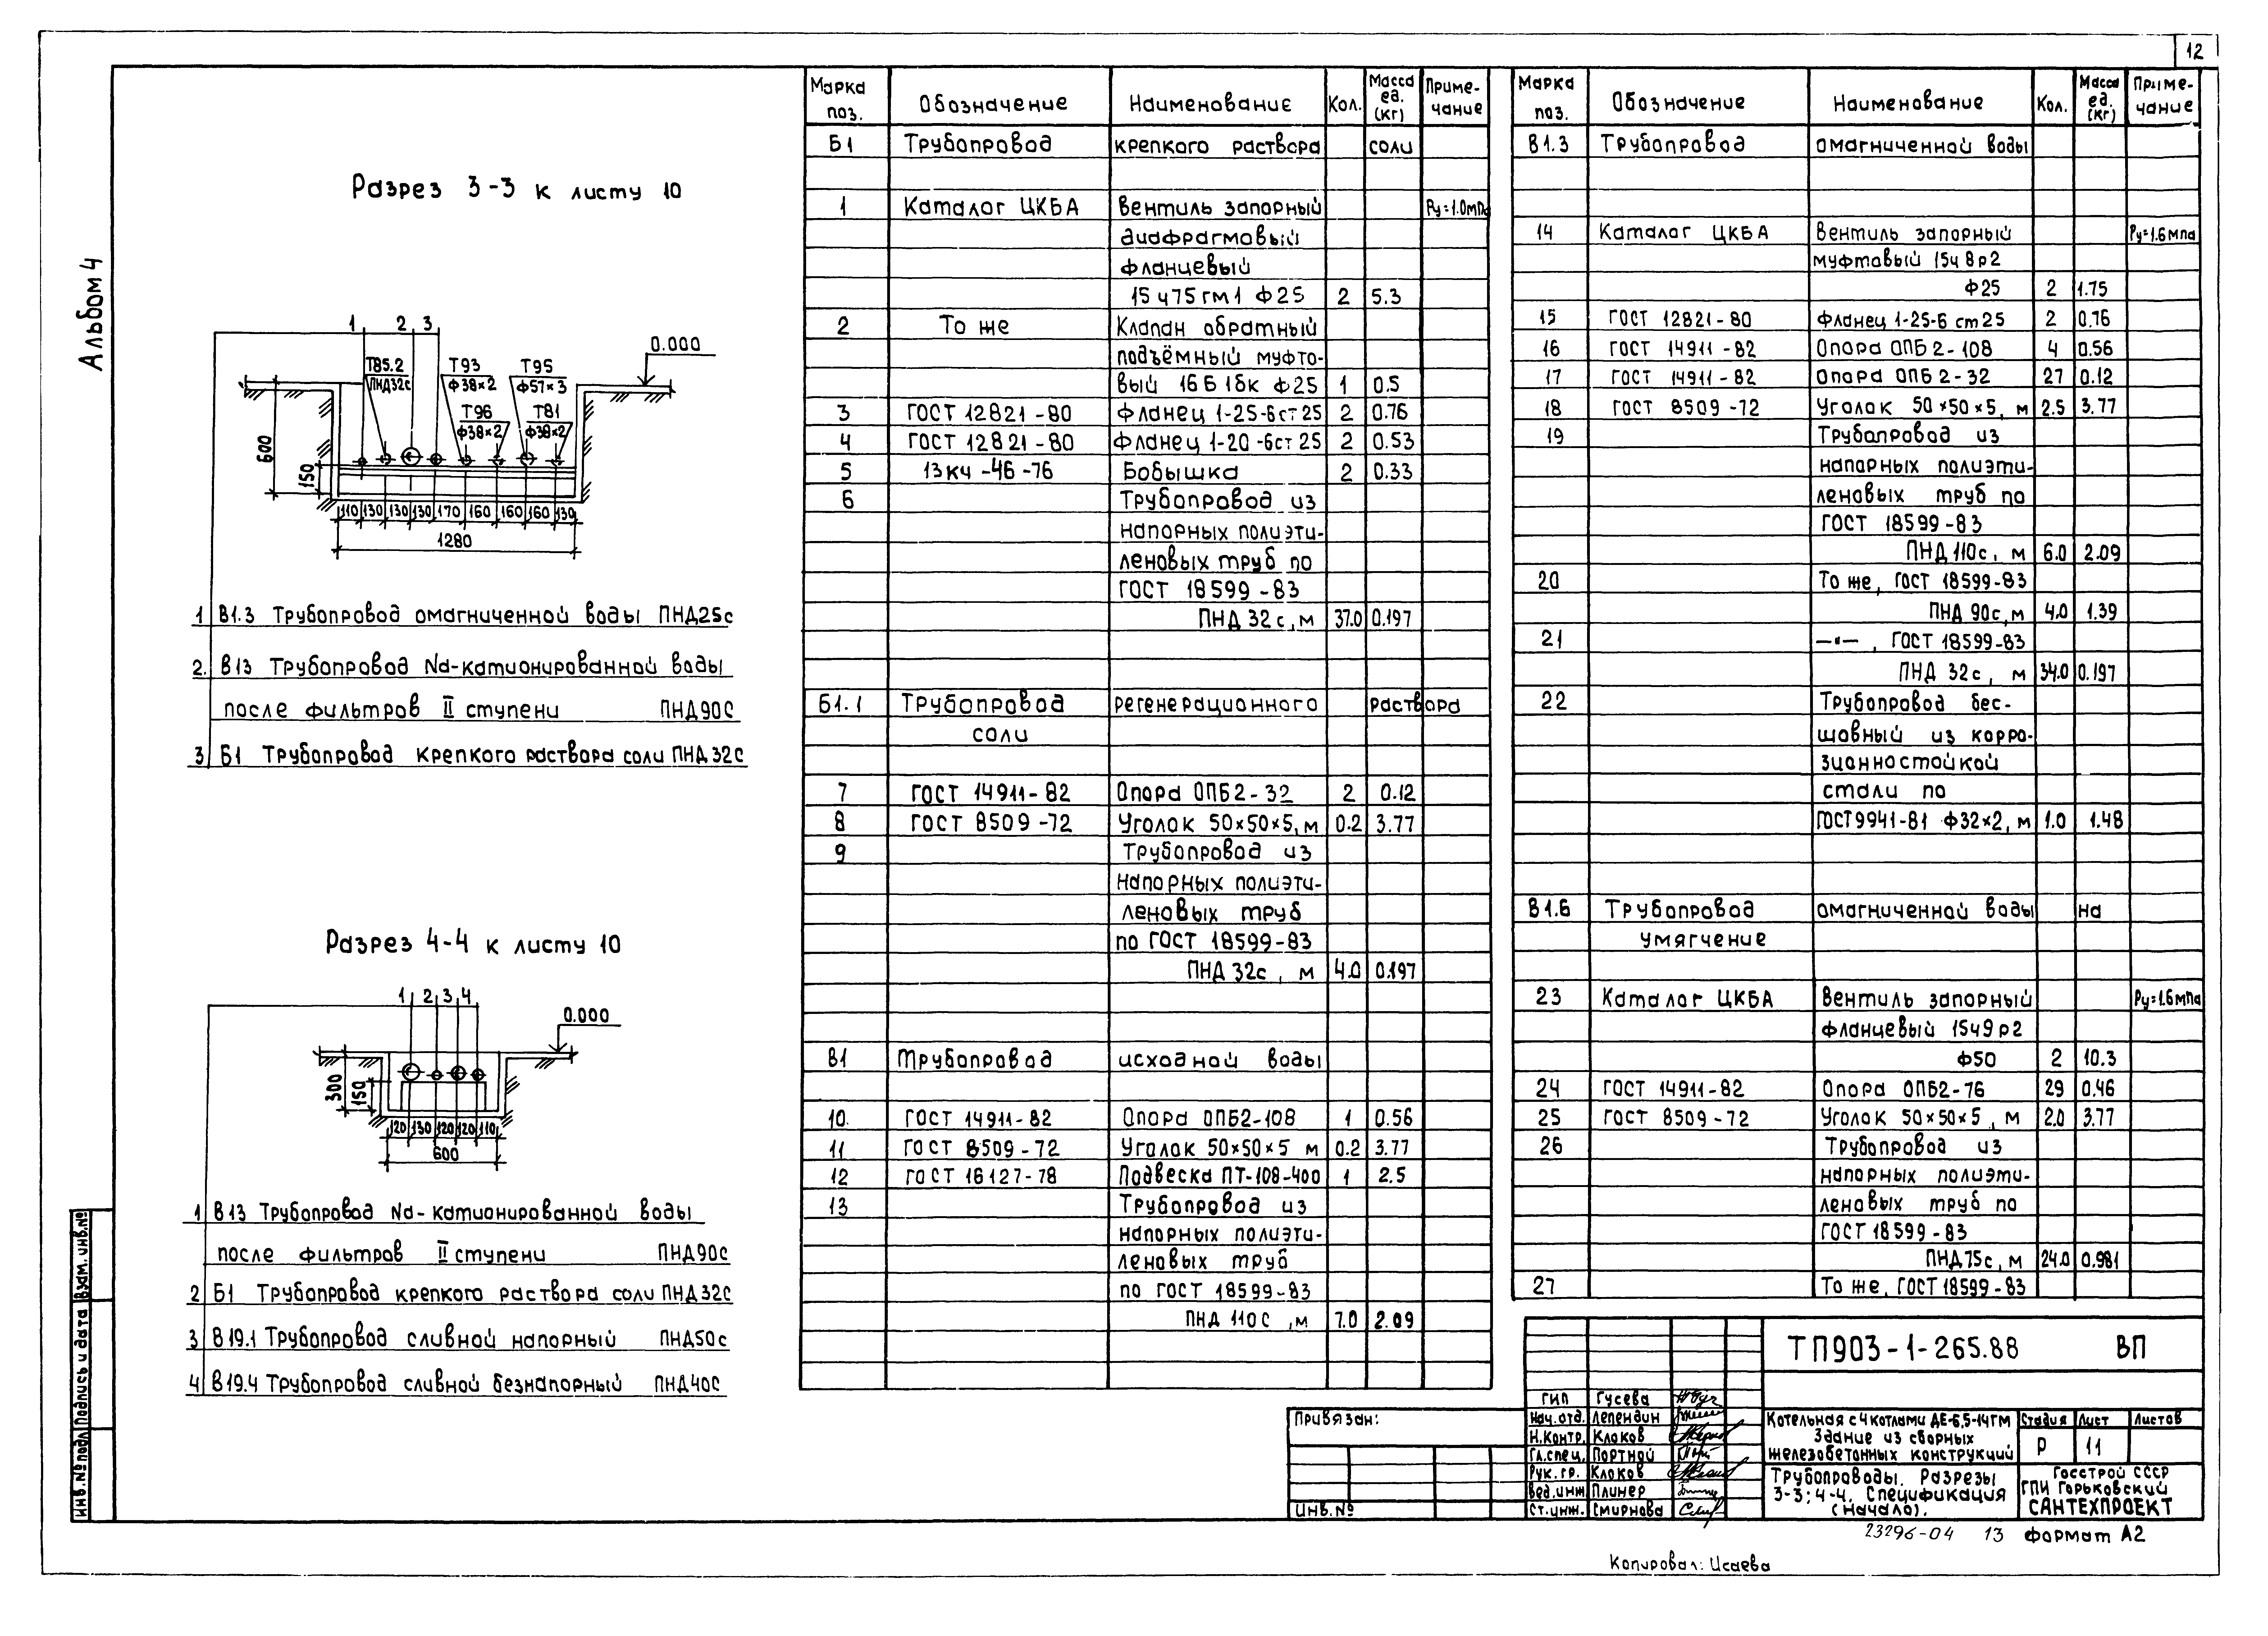 12
Альбом 4
Разрез 3-3 к листу 10
1 2 3
0.000
Т85.2 Т93 Т95
ПНД32с ф38×2 ф57×3
Т96 Т81
ф38×2 ф38×2
600
150
110 130 130 130 170 160 160 160 130
1280
1 В1.3 Трубопровод омагниченной воды ПНД25с
2. В13 Трубопровод Na-катионированной воды
после фильтров II ступени ПНД90С
3 Б1 Трубопровод крепкого раствора соли ПНД32С
Разрез 4-4 к листу 10
1 2 3 4
0.000
300
150
120 130 120 120 110
600
1 В13 Трубопровод Na-катионированной воды
после фильтров II ступени ПНД90С
2 Б1 Трубопровод крепкого раствора соли ПНД32С
3 В19.1 Трубопровод сливной напорный ПНД50с
4 В19.4 Трубопровод сливной безнапорный ПНД40С
Марка поз. Обозначение Наименование Кол. Масса ед. (кг) Приме-чание
Б1 Трубопровод крепкого раствора соли
1 Каталог ЦКБА Вентиль запорный Ру=1.0мпа
диафрагмовый
фланцевый
15ч75гм1 ф25 2 5.3
2 То же Клапан обратный
подъёмный муфто-
вый 16Б1бк ф25 1 0.5
3 ГОСТ 12821-80 Фланец 1-25-6ст25 2 0.76
4 ГОСТ 12821-80 Фланец 1-20-6ст25 2 0.53
5 13кч-46-76 Бобышка 2 0.33
6 Трубопровод из
напорных полиэти-
леновых труб по
ГОСТ 18599-83
ПНД 32с, м 37.0 0.197
Б1.1 Трубопровод регенерационного раствора
соли
7 ГОСТ 14911-82 Опора ОПБ2-32 2 0.12
8 ГОСТ 8509-72 Уголок 50×50×5, м 0.2 3.77
9 Трубопровод из
напорных полиэти-
леновых труб
по ГОСТ 18599-83
ПНД 32с, м 4.0 0.197
В1 Трубопровод исходной воды
10. ГОСТ 14911-82 Опора ОПБ2-108 1 0.56
11 ГОСТ 8509-72 Уголок 50×50×5 м 0.2 3.77
12 ГОСТ 16127-78 Подвеска ПТ-108-400 1 2.5
13 Трубопровод из
напорных полиэти-
леновых труб
по ГОСТ 18599-83
ПНД 110С, м 7.0 2.09
Марка поз. Обозначение Наименование Кол. Масса ед. (кг) Приме-чание
В1.3 Трубопровод омагниченной воды
14 Каталог ЦКБА Вентиль запорный Ру=1.6мпа
муфтовый 15ч8р2
ф25 2 1.75
15 ГОСТ 12821-80 Фланец 1-25-6 ст25 2 0.76
16 ГОСТ 14911-82 Опора ОПБ2-108 4 0.56
17 ГОСТ 14911-82 Опора ОПБ2-32 27 0.12
18 ГОСТ 8509-72 Уголок 50×50×5, м 2.5 3.77
19 Трубопровод из
напорных полиэти-
леновых труб по
ГОСТ 18599-83
ПНД 110с, м 6.0 2.09
20 То же, ГОСТ 18599-83
ПНД 90с, м 4.0 1.39
21 —"—, ГОСТ 18599-83
ПНД 32с, м 34.0 0.197
22 Трубопровод бес-
шовный из корро-
зионностойкой
стали по
ГОСТ9941-81 ф32×2, м 1.0 1.48
В1.6 Трубопровод омагниченной воды на
умягчение
23 Каталог ЦКБА Вентиль запорный Ру=1.6мпа
фланцевый 15ч9р2
ф50 2 10.3
24 ГОСТ 14911-82 Опора ОПБ2-76 29 0.46
25 ГОСТ 8509-72 Уголок 50×50×5, м 2.0 3.77
26 Трубопровод из
напорных полиэти-
леновых труб по
ГОСТ 18599-83
ПНД75с, м 24.0 0.981
27 То же, ГОСТ 18599-83
ТП903-1-265.88 ВП
Привязан:
Инв.№
ГИП Гусева
Нач.отд. Лепендин
Н.контр. Клоков
Гл.спец. Портной
Рук.гр. Клоков
Вед.инж. Плинер
Ст.инж. Смирнова
Котельная с 4 котлами ДЕ-6,5-14ГМ
Здание из сборных
железобетонных конструкций
Стадия Лист Листов
Р 11
Трубопроводы. Разрезы
3-3; 4-4. Спецификация
(начало).
Госстрой СССР
ГПИ Горьковский
САНТЕХПРОЕКТ
23296-04 13 Формат А2
Копировал: Исаева
Инв.№подл. Подпись и дата Взам.инв.№